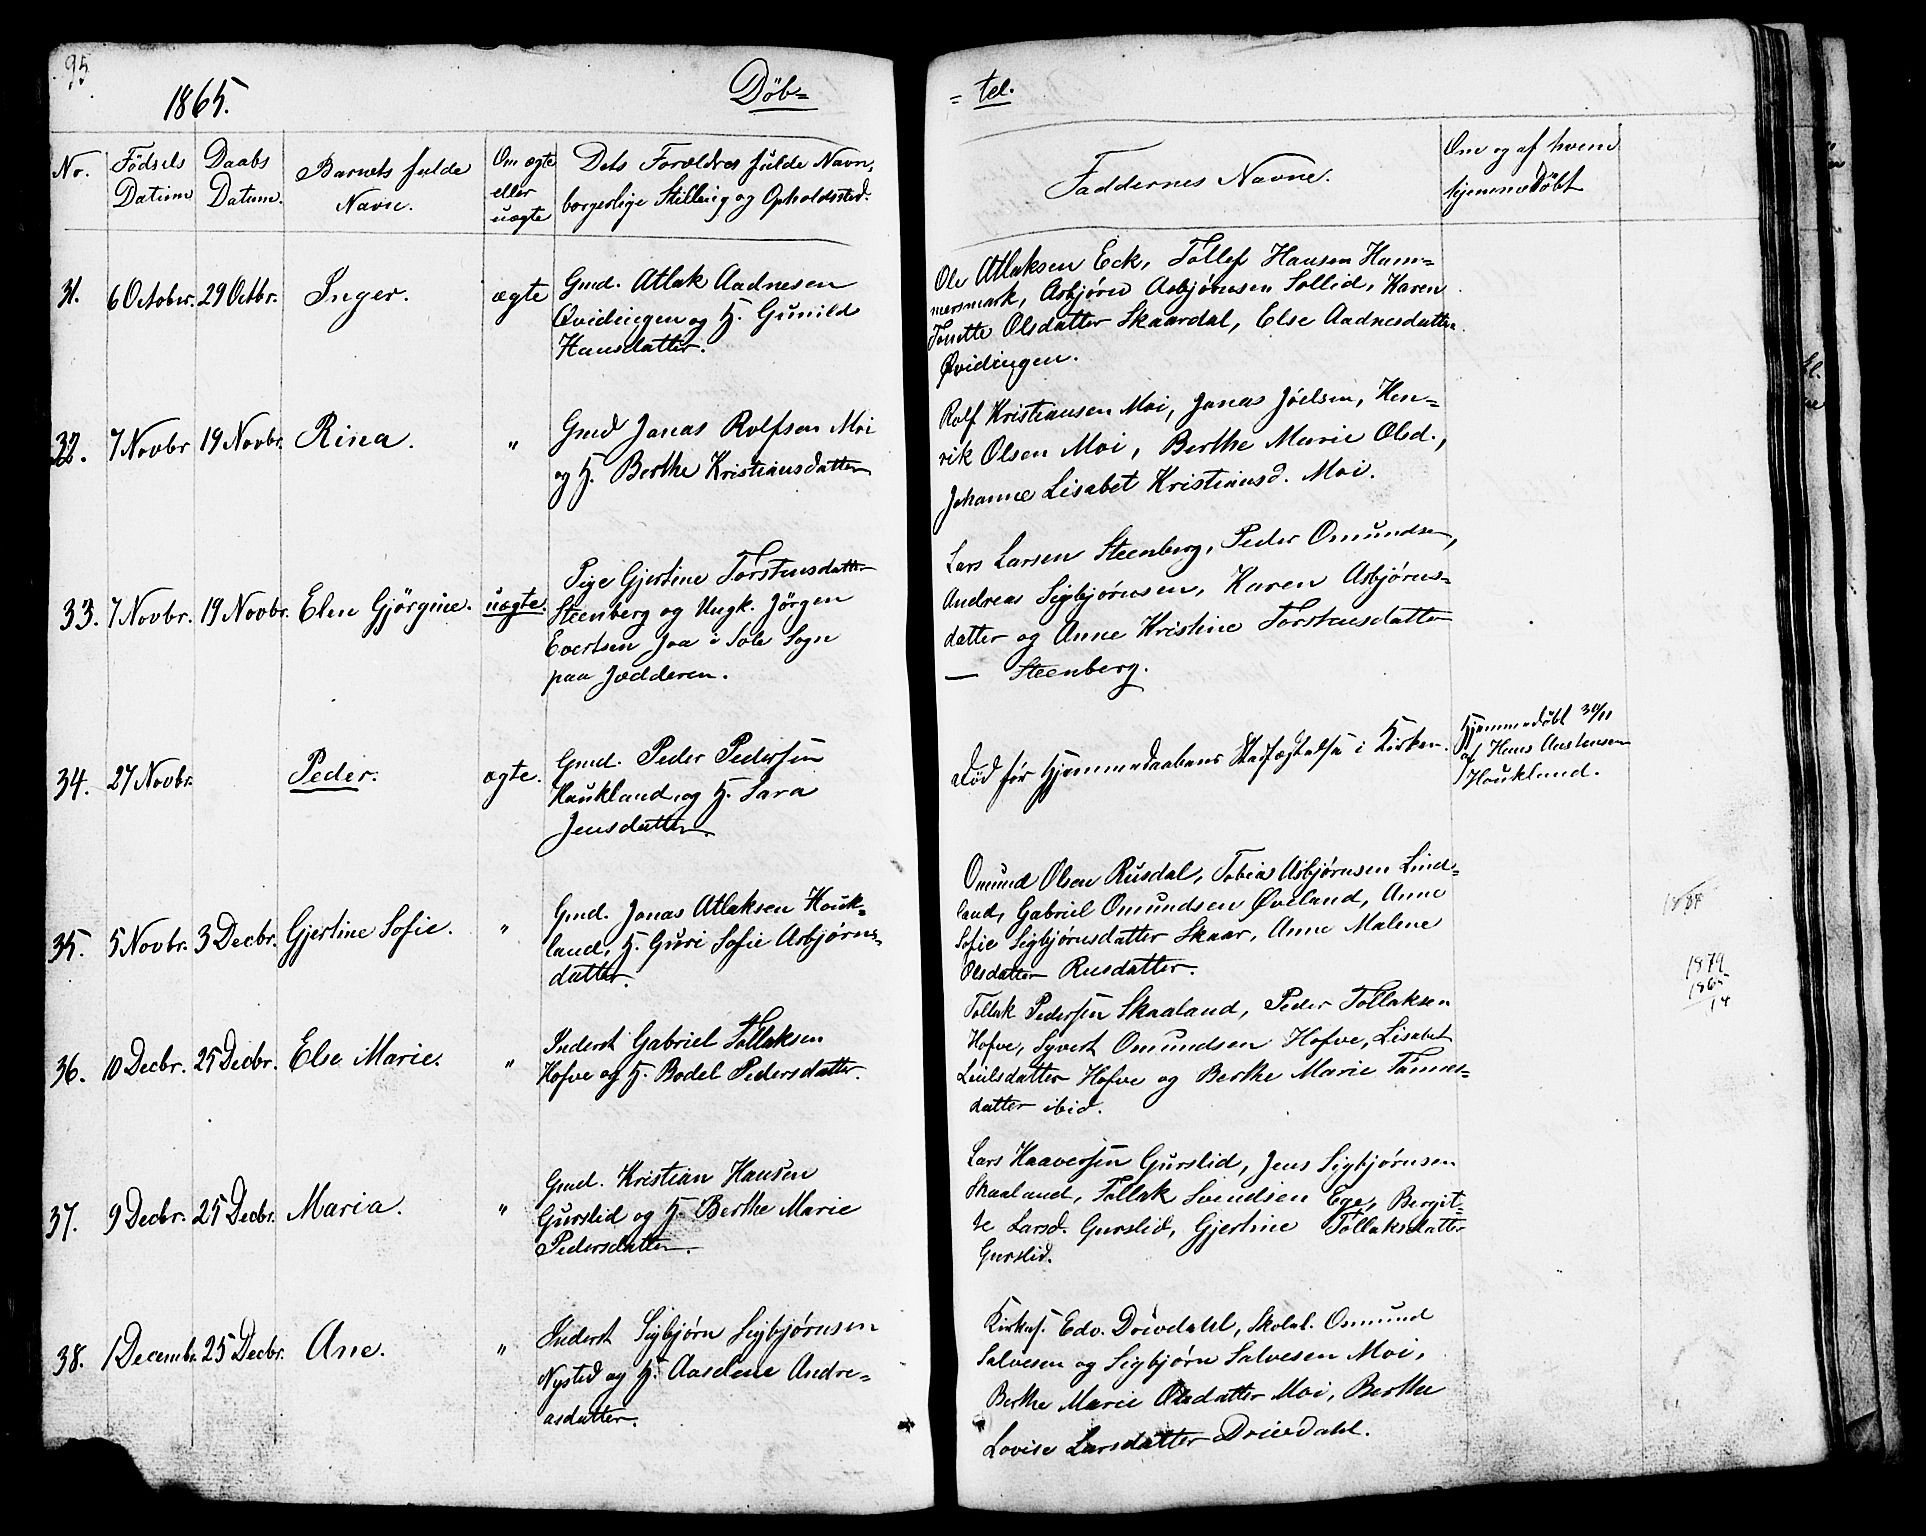 95
1865.
Döb=
= tel.
No.
Födsels Datum
Daabs Datum.
Barnets fulde Navn.
Om ægte eller uægte
Dets Forældres fulde Navn, borgerlige Stilling og Opholdssted.
Faddernes Navne.
Om og af hvem hjemmedöbt
31. 6 October. 29 Octbr. Inger. ægte
Gmd. Atlak Aadnesen
Qvidingen og H. Gunild
Hansdatter.
Ole Atlaksen Eck, Tollef Hansen Ham=
mersmark, Asbjörn Asbjörnsen Sollid, Karen
Tonette Olsdatter Skaardal, Else Aadnesdatter
Qvidingen.
32. 7 Novbr 19 Novbr. Rina. "
Gmd Jonas Rolfsen Moi
og H. Berthe Kristiansdatter
Rolf Kristiansen Moi, Jonas Jóelsen, Hen=
rik Olsen Moi, Berthe Marie Olsd.,
Johanne Lisabet Kristiansd. Moi.
33. 7 Novbr. 19 Novbr. Elen Gjörgine. uægte.
Pige Gjertine Torstensdatter
Steenberg og Ungk. Jörgen
Evertsen Joa i Sole Sogn
paa Jædderen.
Lars Larsen Steenberg, Peder Omundsen,
Andreas Sigbjörnsen, Karen Asbjörns=
datter og Anne Kristine Torstensdatter
— Steenberg.
34. 27 Novbr. Peder. ægte.
Gmd. Peder Pedersen
Haukland og H. Sara
Jensdatter.
Död för Hjemmedaabens Stadfæstelse i Kirken.
Hjemmedöbt 30/11
af Hans Austensen
Houkland.
35. 5 Novbr. 3 Decbr. Gjertine Sofie. "
Gmd. Jonas Atlaksen Houk=
land, H. Guri Sofie Asbjörns=
datter.
Omund Olsen Rusdal, Tobias Asbjörnsen Lind=
land, Gabriel Omundsen Öveland, Anne
Sofie Sigbjörnsdatter Skaar, Anne Malene
Olsdatter Rusdatter.
1879
1865
14
36. 10 Decbr. 25 Decbr. Else Marie. "
Inderst Gabriel Tollaksen
Hofve og H. Bodel Pedersdatter.
Tollak Pedersen Skaaland, Peder Tollaksen
Hofve, Syvert Omundsen Hofve, Lisabet
datter Hofve og Berthe Marie Tönnes=
datter ibid.
37. 9 Decbr. 25 Decbr. Maria. "
Gmd. Kristian Hansen
Gurslid og H. Berthe Marie
Pedersdatter.
Lars Haaversen Gurslid, Jens Sigbjörnsen
Skaaland, Tollak Svendsen Ege, Bergit=
te Larsd. Gurslid, Gjertine Tollaksdatter
Gurslid.
38. 1 Decembr. 25 Decbr. Ane. "
Inderst Sigbjörn Sigbjörnsen
Nysted og H. Aaselene Andre=
asdatter.
Kirkes. Edv. Drivdahl, Skolel. Osmund
Salvesen og Sigbjörn Salvesen Moi,
Berthe Marie Olsdatter Moi, Berthe
Lovise Larsdatter Drivdahl.